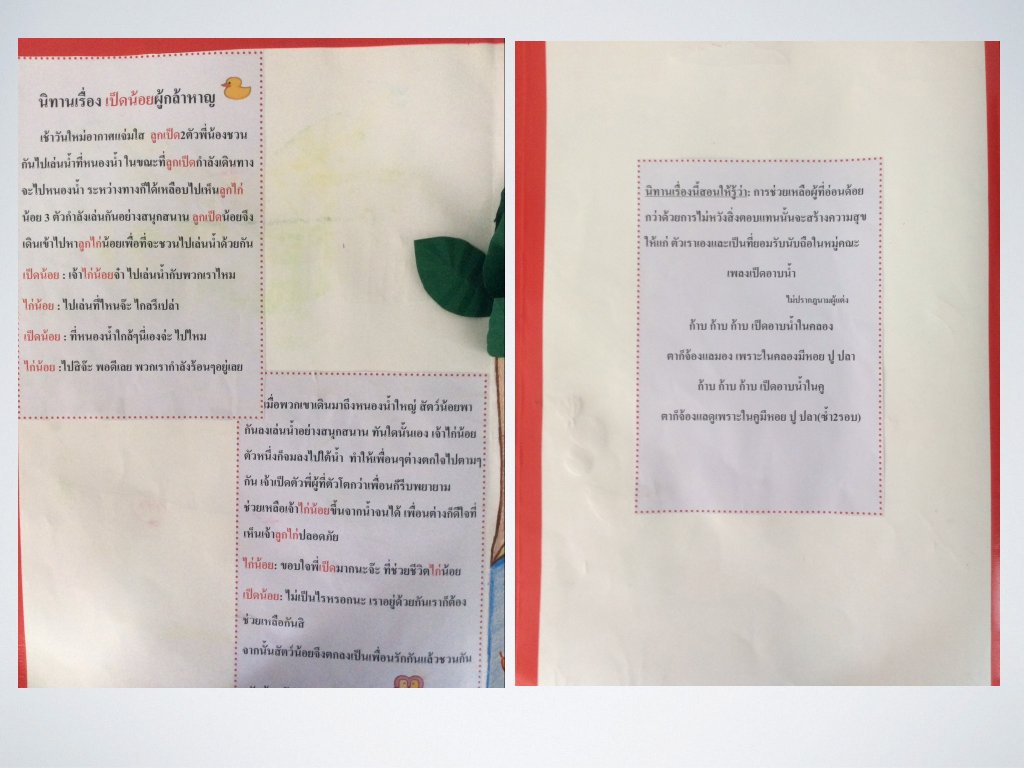 นิทานเรื่อง เป็ดน้อยผู้กล้าหาญ
เช้าวันใหม่อากาศแจ่มใส ลูกเป็ด2ตัวพี่น้องชวน
กันไปเล่นน้ำที่หนองน้ำ ในขณะที่ลูกเป็ดกำลังเดินทาง
จะไปหนองน้ำ ระหว่างทางก็ได้เหลือบไปเห็นลูกไก่
น้อย 3 ตัวกำลังเล่นกันอย่างสนุกสนาน ลูกเป็ดน้อยจึง
เดินเข้าไปหาลูกไก่น้อยเพื่อที่จะชวนไปเล่นน้ำด้วยกัน
เป็ดน้อย : เจ้าไก่น้อยจ๋า ไปเล่นน้ำกับพวกเราไหม
ไก่น้อย : ไปเล่นที่ไหนจ๊ะ ไกลรึเปล่า
เป็ดน้อย : ที่หนองน้ำใกล้ๆนี่เองจ่ะ ไปไหม
ไก่น้อย :ไปสิจ๊ะ พอดีเลย พวกเรากำลังร้อนๆอยู่เลย
มื่อพวกเขาเดินมาถึงหนองน้ำใหญ่ สัตว์น้อยพา
กันลงเล่นน้ำอย่างสนุกสนาน ทันใดนั้นเอง เจ้าไก่น้อย
ตัวหนึ่งก็จมลงไปใต้น้ำ ทำให้เพื่อนๆต่างตกใจไปตามๆ
กัน เจ้าเป็ดตัวพี่ผู้ที่ตัวโตกว่าเพื่อนก็รีบพยายาม
ช่วยเหลือเจ้าไก่น้อยขึ้นจากน้ำจนได้ เพื่อนต่างก็ดีใจที่
เห็นเจ้าลูกไก่ปลอดภัย
ไก่น้อย: ขอบใจพี่เป็ดมากนะจ๊ะ ที่ช่วยชีวิตไก่น้อย
เป็ดน้อย: ไม่เป็นไรหรอกนะ เราอยู่ด้วยกันเราก็ต้อง
ช่วยเหลือกันสิ
จากนั้นสัตว์น้อยจึงตกลงเป็นเพื่อนรักกันแล้วชวนกัน
นิทานเรื่องนี้สอนให้รู้ว่า: การช่วยเหลือผู้ที่อ่อนด้อย
กว่าด้วยการไม่หวังสิ่งตอบแทนนั้นจะสร้างความสุข
ให้แก่ ตัวเราเองและเป็นที่ยอมรับนับถือในหมู่คณะ
เพลงเป็ดอาบน้ำ
ไม่ปรากฏนามผู้แต่ง
ก้าบ ก้าบ ก้าบ เป็ดอาบน้ำในคลอง
ตาก็จ้องแลมอง เพราะในคลองมีหอย ปู ปลา
ก้าบ ก้าบ ก้าบ เป็ดอาบน้ำในคู
ตาก็จ้องแลดูเพราะในคูมีหอย ปู ปลา(ซ้ำ2รอบ)